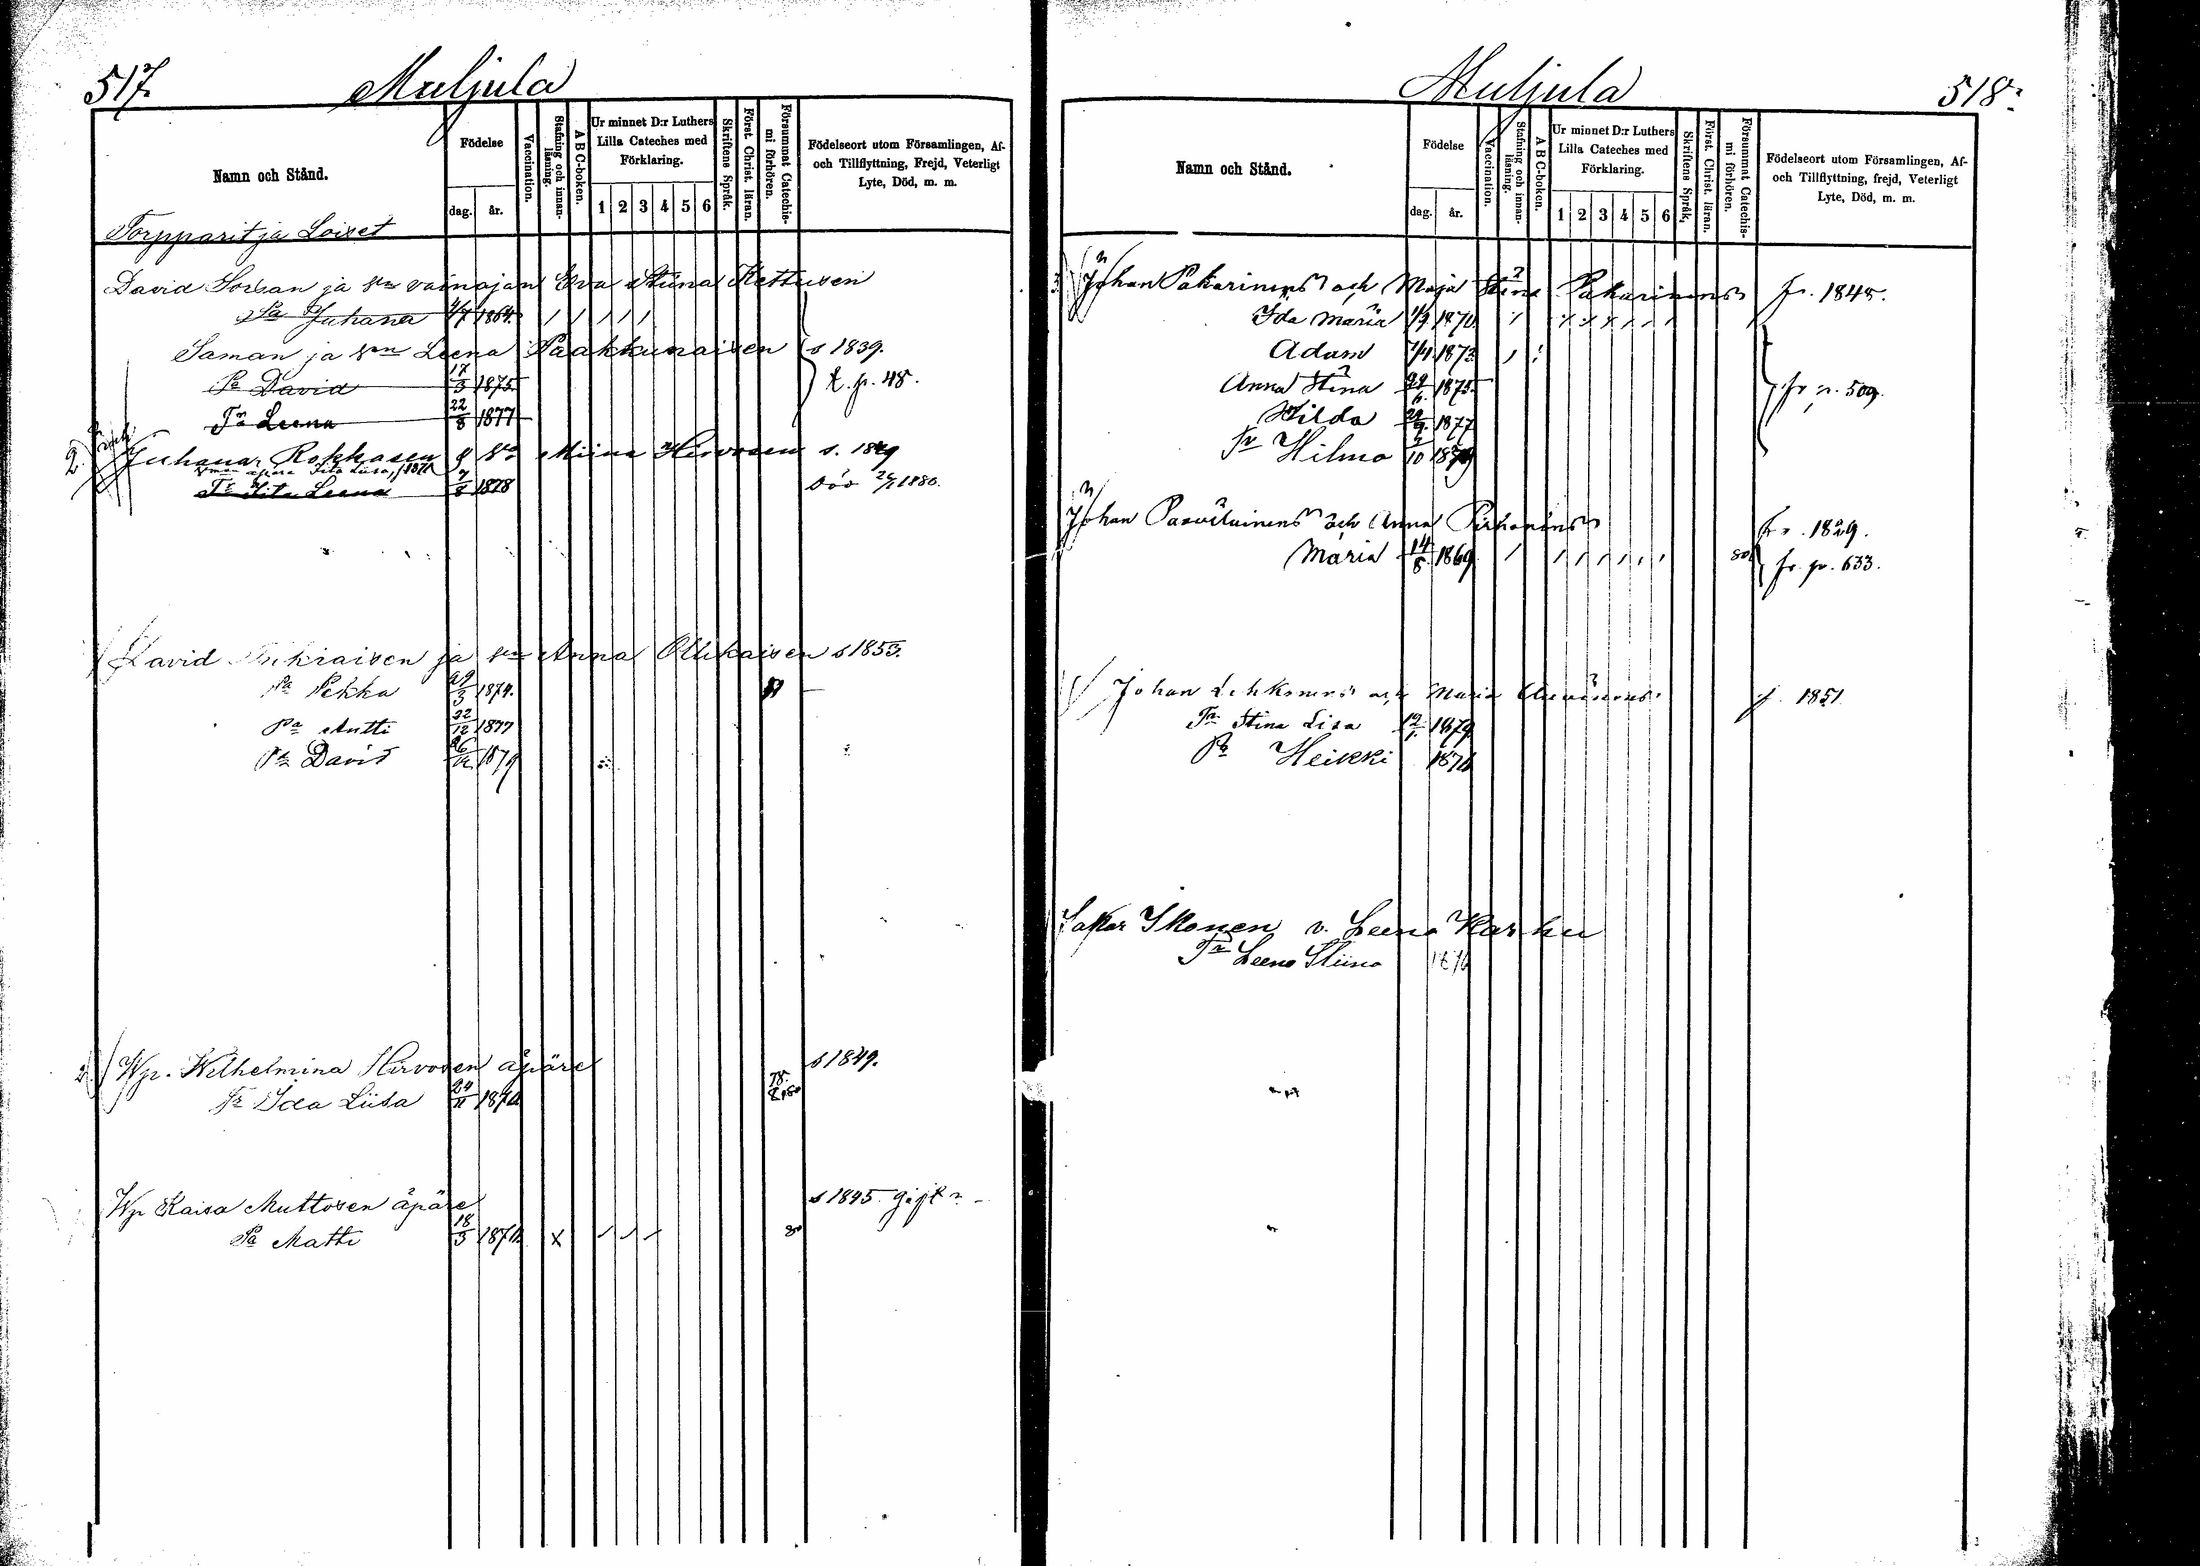 517.
Muljula
Namn och Stånd.
Födelse
dag. år.
Vaccination.
Stafning och innan-läsning.
A B C-boken.
Ur minnet D:r Luthers Lilla Cateches med Förklaring.
1 2 3 4 5 6
Skriftens Språk.
Först. Christ. läran.
Försummat Catechis-mi förhören.
Födelseort utom Församlingen, Af- och Tillflyttning, Frejd, Veterligt Lyte, Död, m. m.
Torpparit ja Loiset
David Sorsan ja vainajan Eva Stiina Kettusen
Pa Juhana 4/7 1864.
Saman ja Leena Paakkunaisen s 1839.
Pa David 17/3 1875 t. p. 48.
Tr Leena 22/8 1877
2. Juhana Rokkasen Miina Hirvosen s. 1849
Leena 7/8 1878 1880.
David ja Anna Ollikaisen s 1853.
Pa Pekka 29/3 1874.
Pa Antti 22/12 1877
Pa David 1879
2. Wp. Wilhelmina Hirvosen äpäre s 1849.
78.
Tr Ida Liisa 24/11 1870
Wp Kaisa Muttosen äpäre s 1845. gift
Pa Matti 18/3 1871. x 80
Muljula
518.
Namn och Stånd.
Födelse
dag. år.
Vaccination.
Stafning och innan-läsning.
A B C-boken.
Ur minnet D:r Luthers Lilla Cateches med Förklaring.
1 2 3 4 5 6
Skriftens Språk.
Först. Christ. läran.
Försummat Catechis-mi förhören.
Födelseort utom Församlingen, Af- och Tillflyttning, frejd, Veterligt Lyte, Död, m. m.
Johan Pakarinens och Maja Stina Pakarinens f. 1845.
Ida Maria 1870.
Adam 7/4 1873
Anna Stina 1875 fr p. 509.
Hilda 1877
Tr Hilma 1879
Johan och Anna 1829.
Maria 14/8 1869 80 fr. p. 633.
Johan och Maria f. 1851
Tr Stina Lisa 1879.
Pa Heikki
Ikonen v. Leena Karhu
Tr Leena Stiina